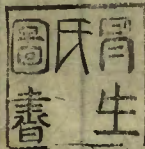 生
氏
圖書